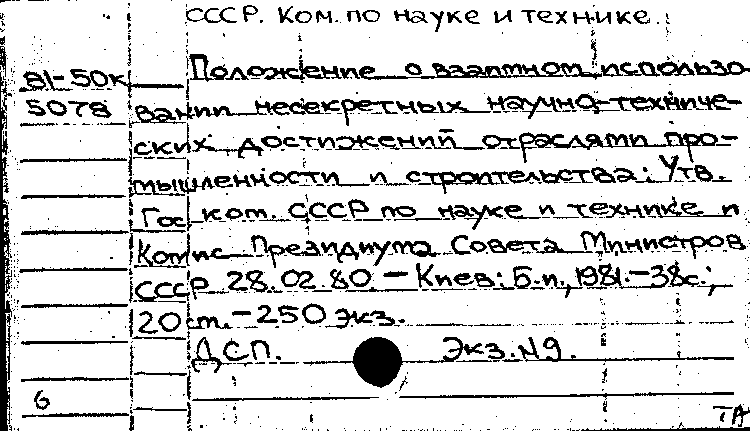 СССР. Ком. по науке и технике.
81-50к Положение о взаимном использо-
5078 вании несекретных научно-техниче-
ских достижений отраслями про-
мышленности и строительства: Утв.
Гос ком. СССР по науке и технике и
Комис Президиума Совета Министров
СССР 28.02.80 – Киев: Б.и., 1981.–38с.;
20см.–250 экз.
ДСП. Экз. N9.
6
ТА